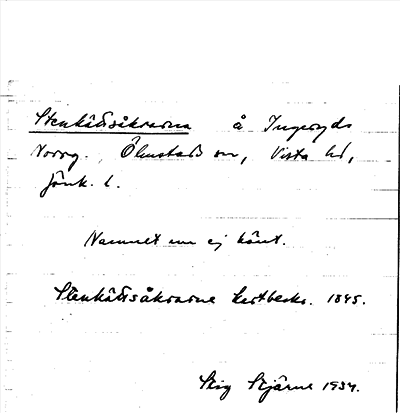 Stenkällsåkrarna å Ingeryds
Norrg., Ölmstads sn, Vista hd,
Jönk. l.
Namnet nu ej känt.
Stenkällsåkrarne kartbeskr. 1845.
Stig Stjärne 1934.